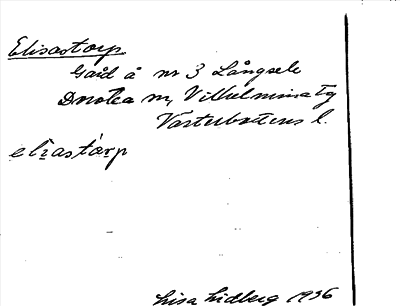 Elisastorp
Gård å nr 3 Långsele
Dorotea sn, Vilhelmina tg
Västerbottens l.
elìastàrp
Lisa Lidberg 1936